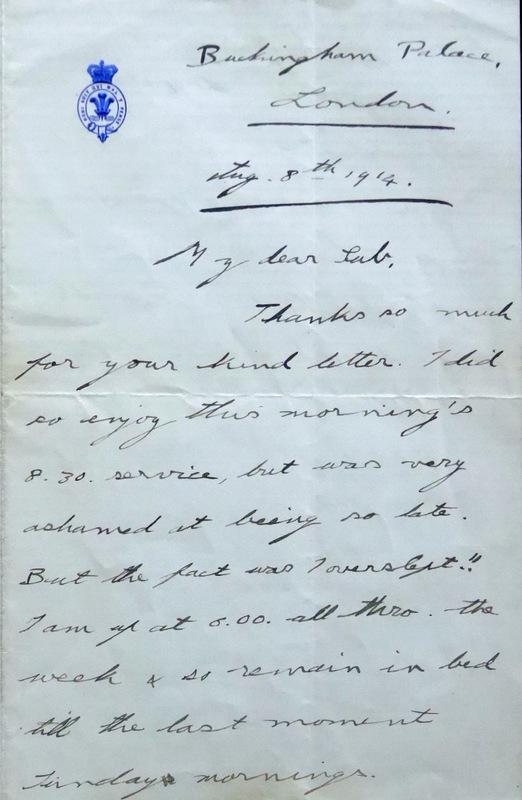 HONI SOIT QUI MAL Y PENSE
Buckingham Palace,
London.
Aug. 8th 1914.
My dear Sub,
Thanks so much
for your kind letter. I did
so enjoy this morning's
8.30. service, but was very
ashamed at being so late.
But the fact was I overslept!!
I am up at 6.00. all thro. the
week & so remain in bed
till the last moment
Sundays mornings.